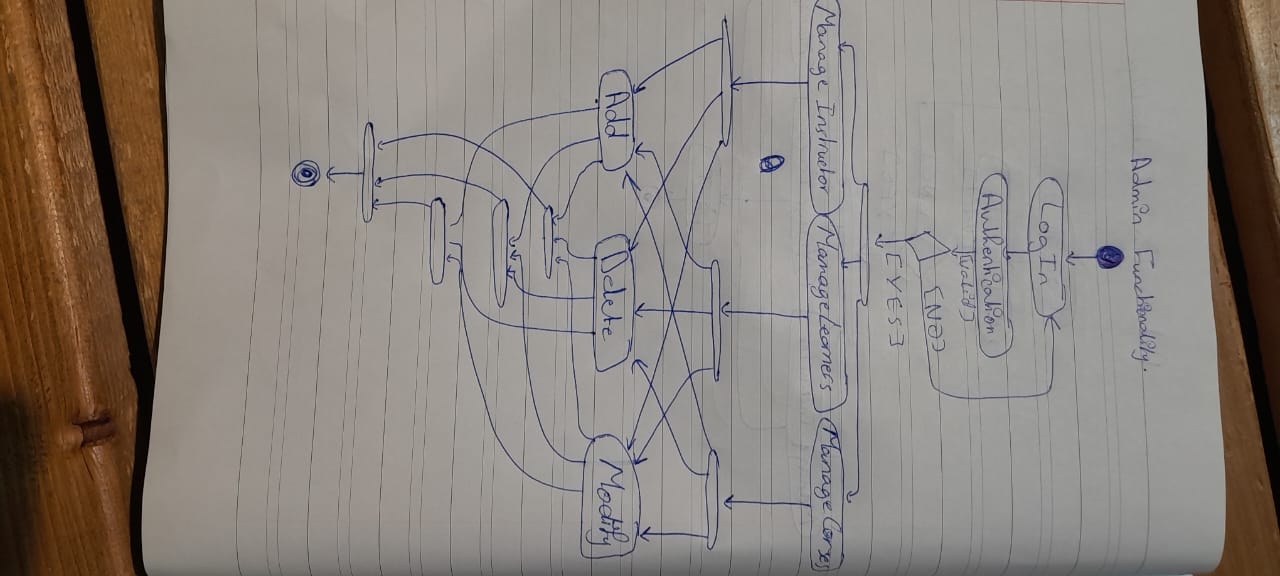 Admin Functionality.
Log In
Authentication
[valid]
[NO]
[YES]
Manage Instructor Manage Learners Manage Corses
Add Delete Modify